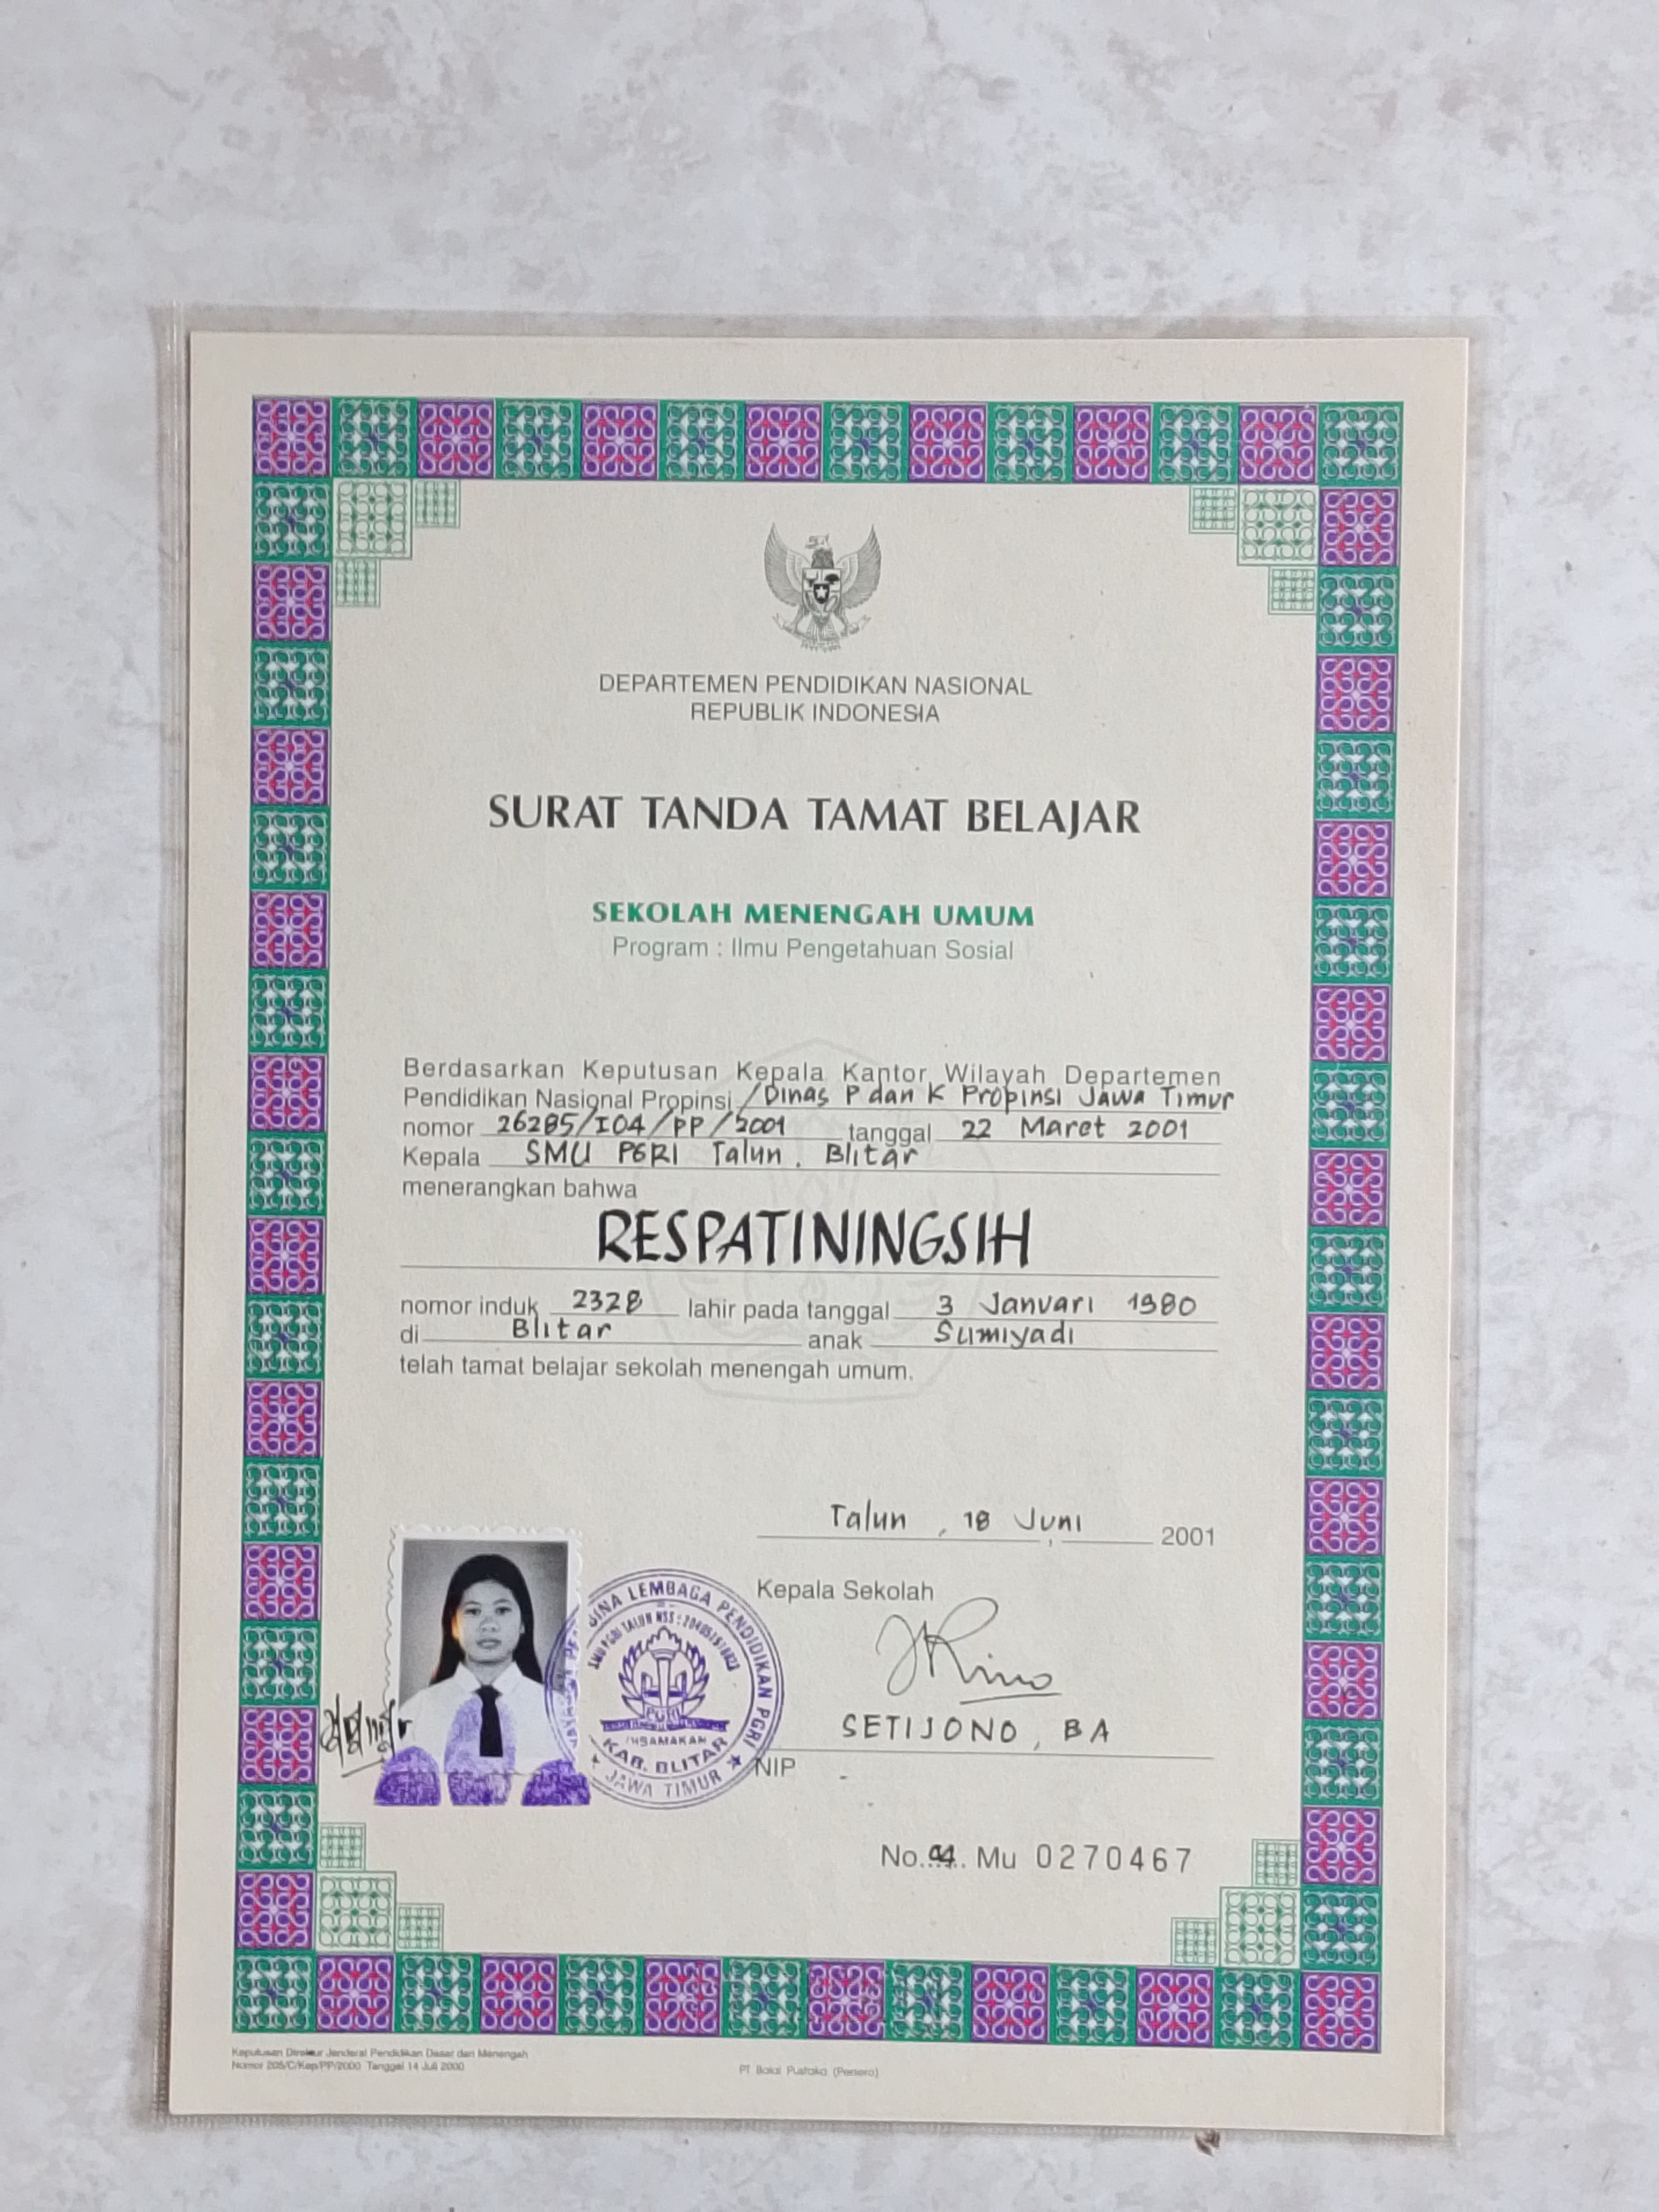 DEPARTEMEN PENDIDIKAN NASIONAL
REPUBLIK INDONESIA
SURAT TANDA TAMAT BELAJAR
SEKOLAH MENENGAH UMUM
Program : Ilmu Pengetahuan Sosial
Berdasarkan Keputusan Kepala Kantor Wilayah Departemen
Pendidikan Nasional Propinsi /Dinas P dan K Propinsi Jawa Timur
nomor 26285/I04/PP/2001 tanggal 22 Maret 2001
Kepala SMU PGRI Talun. Blitar
menerangkan bahwa
RESPATININGSIH
nomor induk 2328 lahir pada tanggal 3 Januari 1980
di Blitar anak Sumiyadi
telah tamat belajar sekolah menengah umum.
Talun, 18 Juni, 2001
Kepala Sekolah
SETIJONO, BA
NIP -
LEMBAGA PENDIDIKAN PGRI
SMU PGRI TALUN NSS :
PGRI
KAB. BLITAR
JAWA TIMUR
No. 04. Mu 0270467
Keputusan Direktur Jenderal Pendidikan Dasar dan Menengah
Nomor 205/C/Kep/PP/2000 Tanggal 14 Juli 2000
PT Balai Pustaka (Persero)